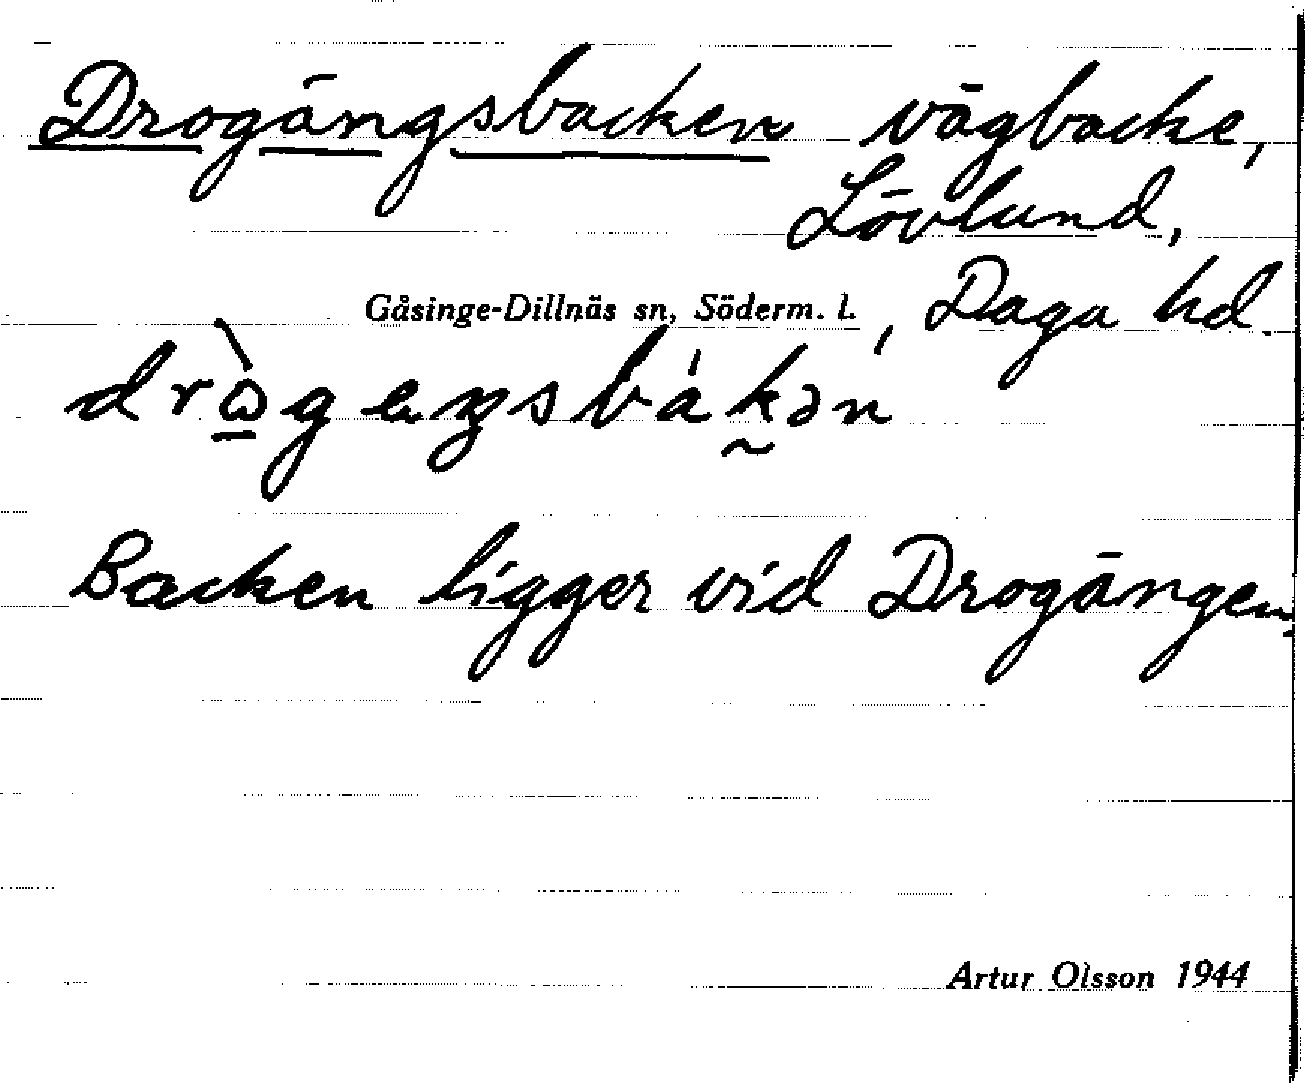 Drogängsbacken vägbacke,
Lövlund,
Gåsinge-Dillnäs sn, Söderm. l., Daga hd
Backen ligger vid Drogängen.
Artur Olsson 1944